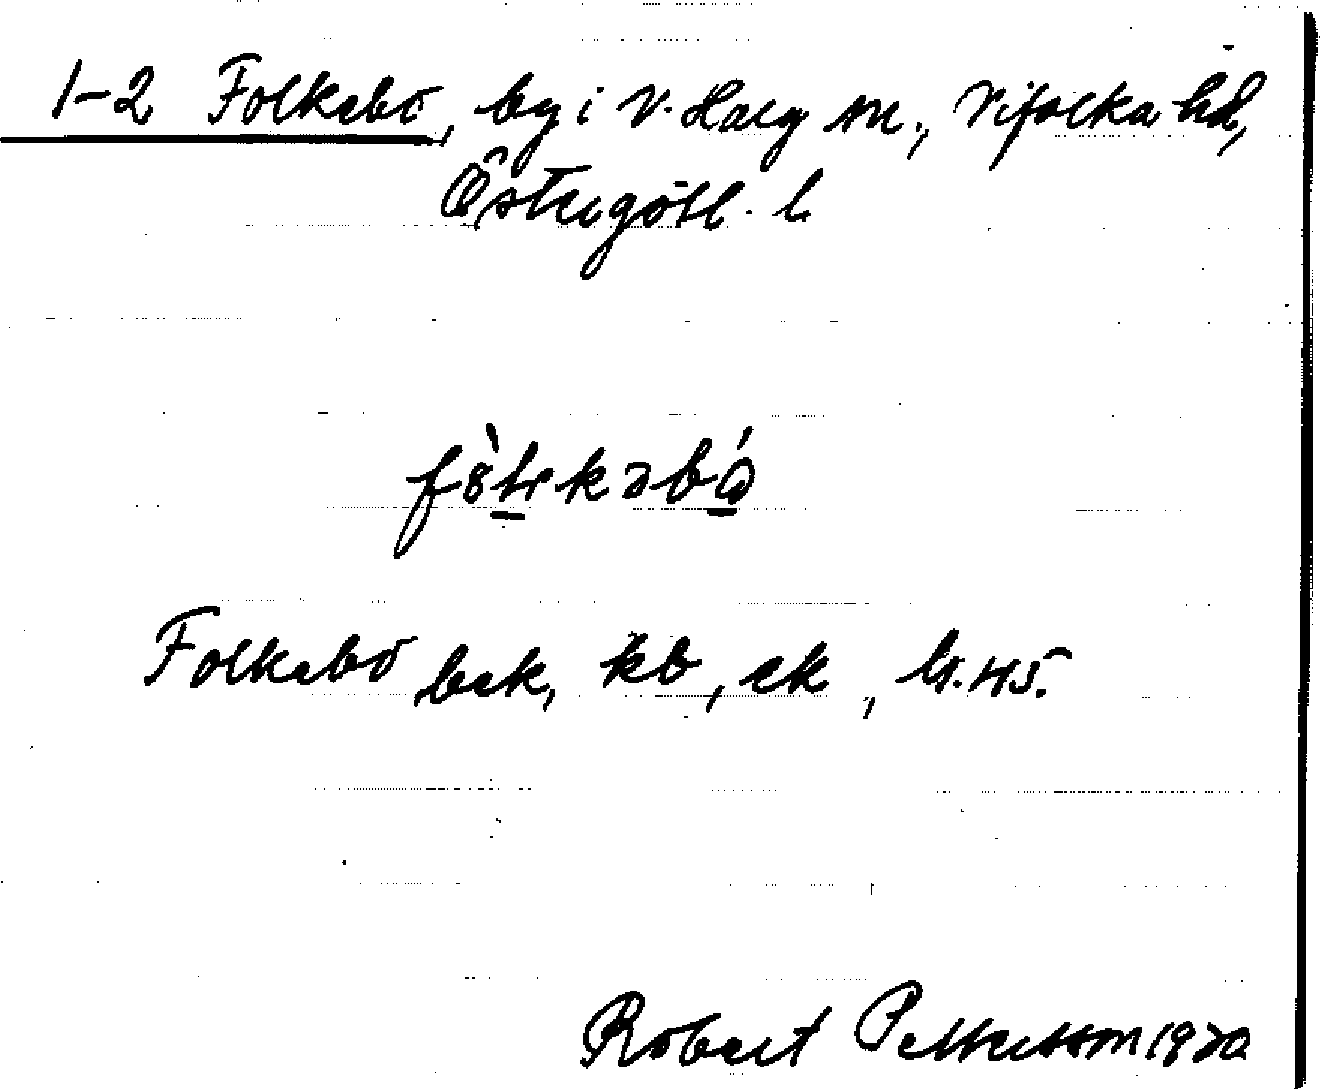 1-2 Folkabo, by i V. Harg sn., Vifolka hd,
Östergötl. l
Folkabo bek, kb, ek,
Robert Pettersson 1970